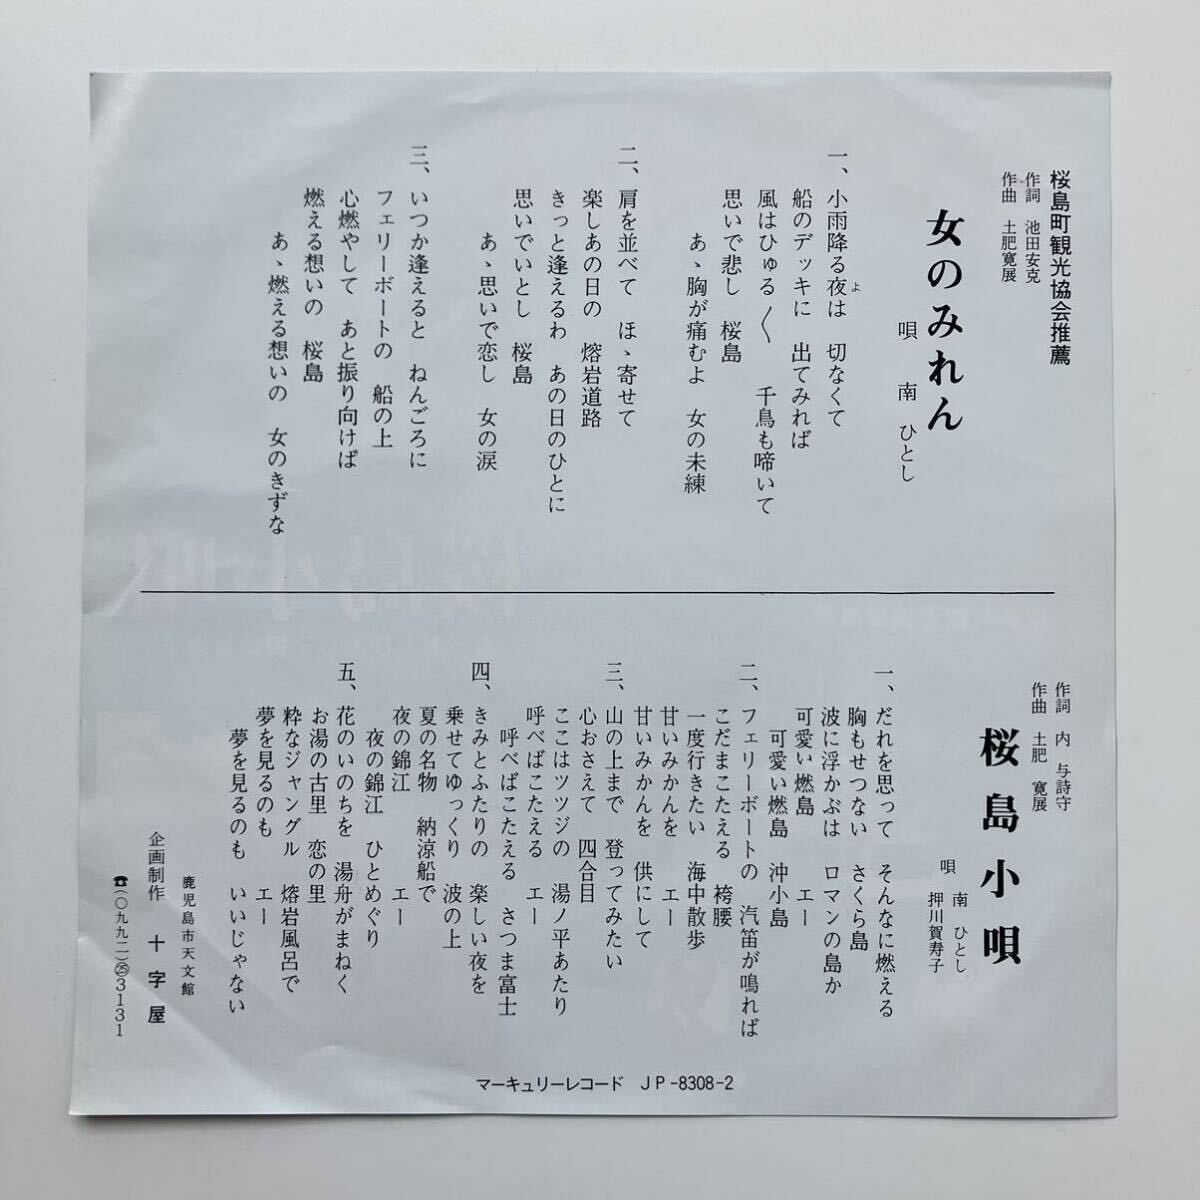 桜島町観光協会推薦
作詞　池田安克
作曲　土肥寛展
女のみれん
唄　南　ひとし
一、小雨降る夜は　切なくて
よ
船のデッキに　出てみれば
風はひゅる〱　千鳥も啼いて
思いで悲し　桜島
あゝ胸が痛むよ　女の未練
二、肩を並べて　ほゝ寄せて
楽しあの日の　熔岩道路
きっと逢えるわ　あの日のひとに
思いでいとし　桜島
あゝ思いで恋し　女の涙
三、いつか逢えると　ねんごろに
フェリーボートの　船の上
心燃やして　あと振り向けば
燃える想いの　桜島
あゝ燃える想いの　女のきずな
作詞　内　与詩守
作曲　土肥　寛展
桜島小唄
唄　南　ひとし
押川賀寿子
一、だれを思って　そんなに燃える
胸もせつない　さくら島
波に浮かぶは　ロマンの島か
可愛い燃島　エー
可愛い燃島　沖小島
二、フェリーボートの　汽笛が鳴れば
こだまこたえる　袴腰
一度行きたい　海中散歩
甘いみかんを　エー
甘いみかんを　供にして
三、山の上まで　登ってみたい
心おさえて　四合目
ここはツツジの　湯ノ平あたり
呼べばこたえる　エー
呼べばこたえる　さつま富士
四、きみとふたりの　楽しい夜を
乗せてゆっくり　波の上
夏の名物　納涼船で
夜の錦江　エー
夜の錦江　ひとめぐり
五、花のいのちを　湯舟がまねく
お湯の古里　恋の里
粋なジャングル　熔岩風呂で
夢を見るのも　エー
夢を見るのも　いいじゃない
鹿児島市天文館
企画制作　十字屋
☎(〇九九二)㉕3131
マーキュリーレコード　JP-8308-2